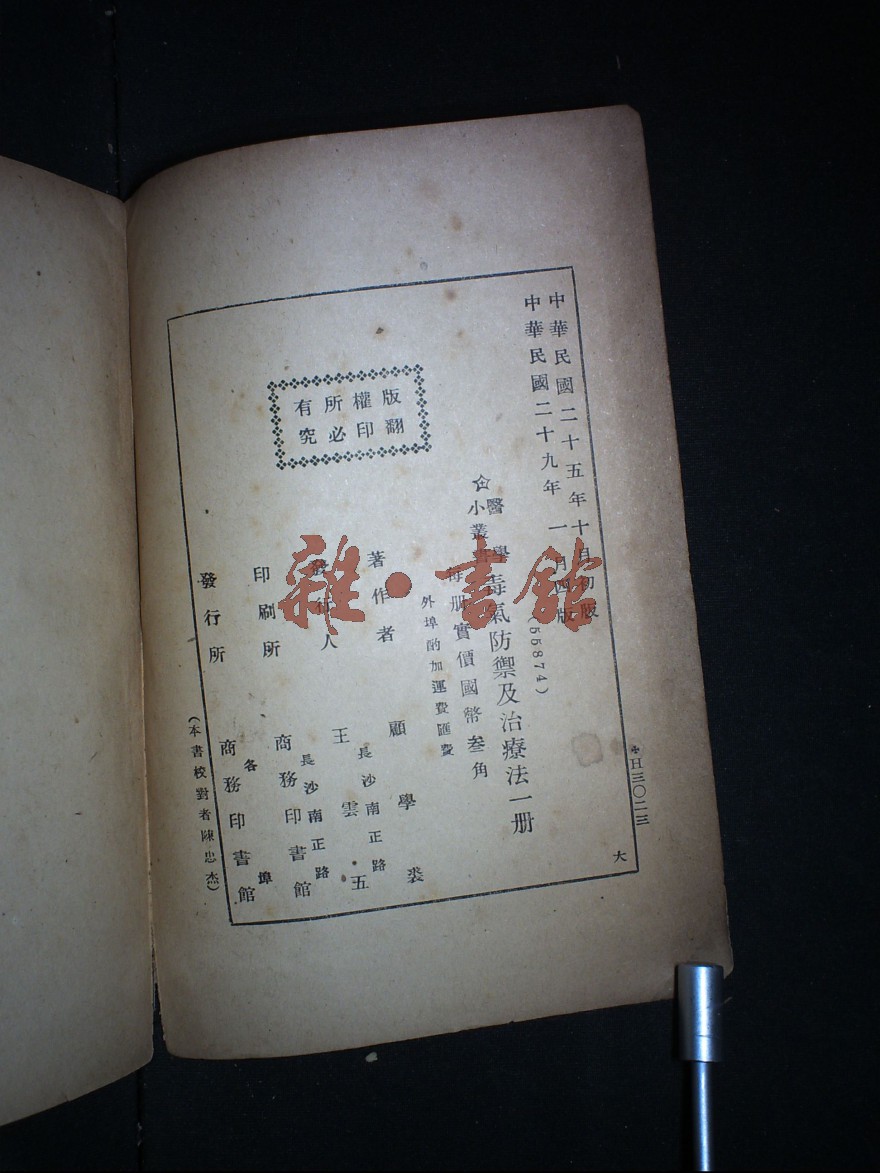 中華民國二十五年十月初版
中華民國二十九年一月四版
(55874)
☆醫學小叢書
毒氣防禦及治療法一册
每册實價國幣叁角
外埠酌加運費匯費
版權所有
翻印必究
著作者 顧學裘
發行人 王雲五
長沙南正路
印刷所 商務印書館
長沙南正路
發行所 商務印書館
各埠
(本書校對者陳忠杰)
*H三〇二三
大
雜·書館